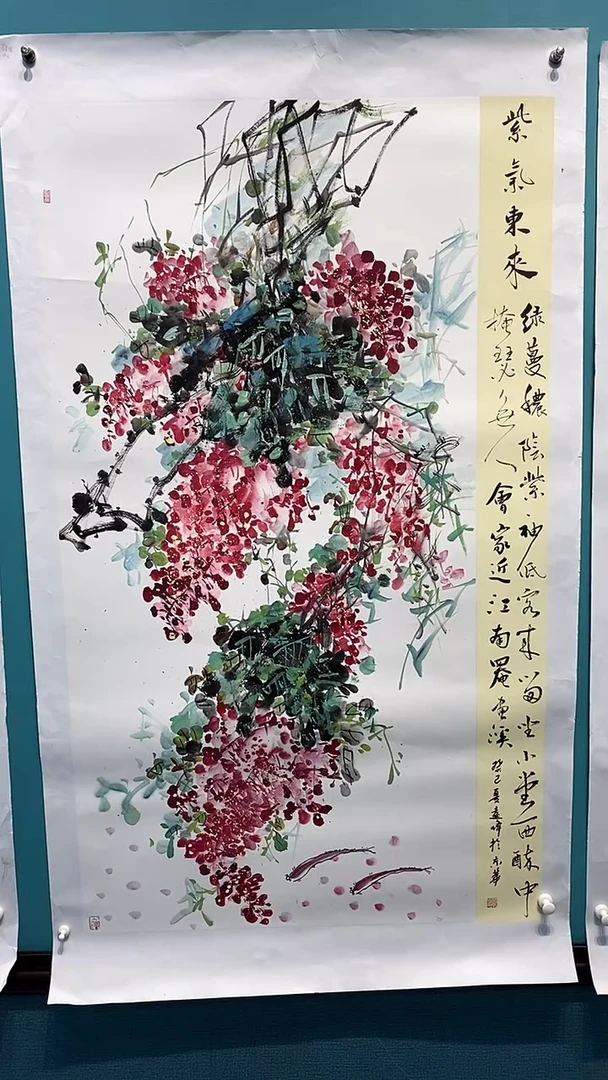 紫氣東來
绿蔓穠陰紫袖低客来留坐小堂西醉中
掩瑟無人會家近江南罨畫溪
癸巳夏遠峰於京華